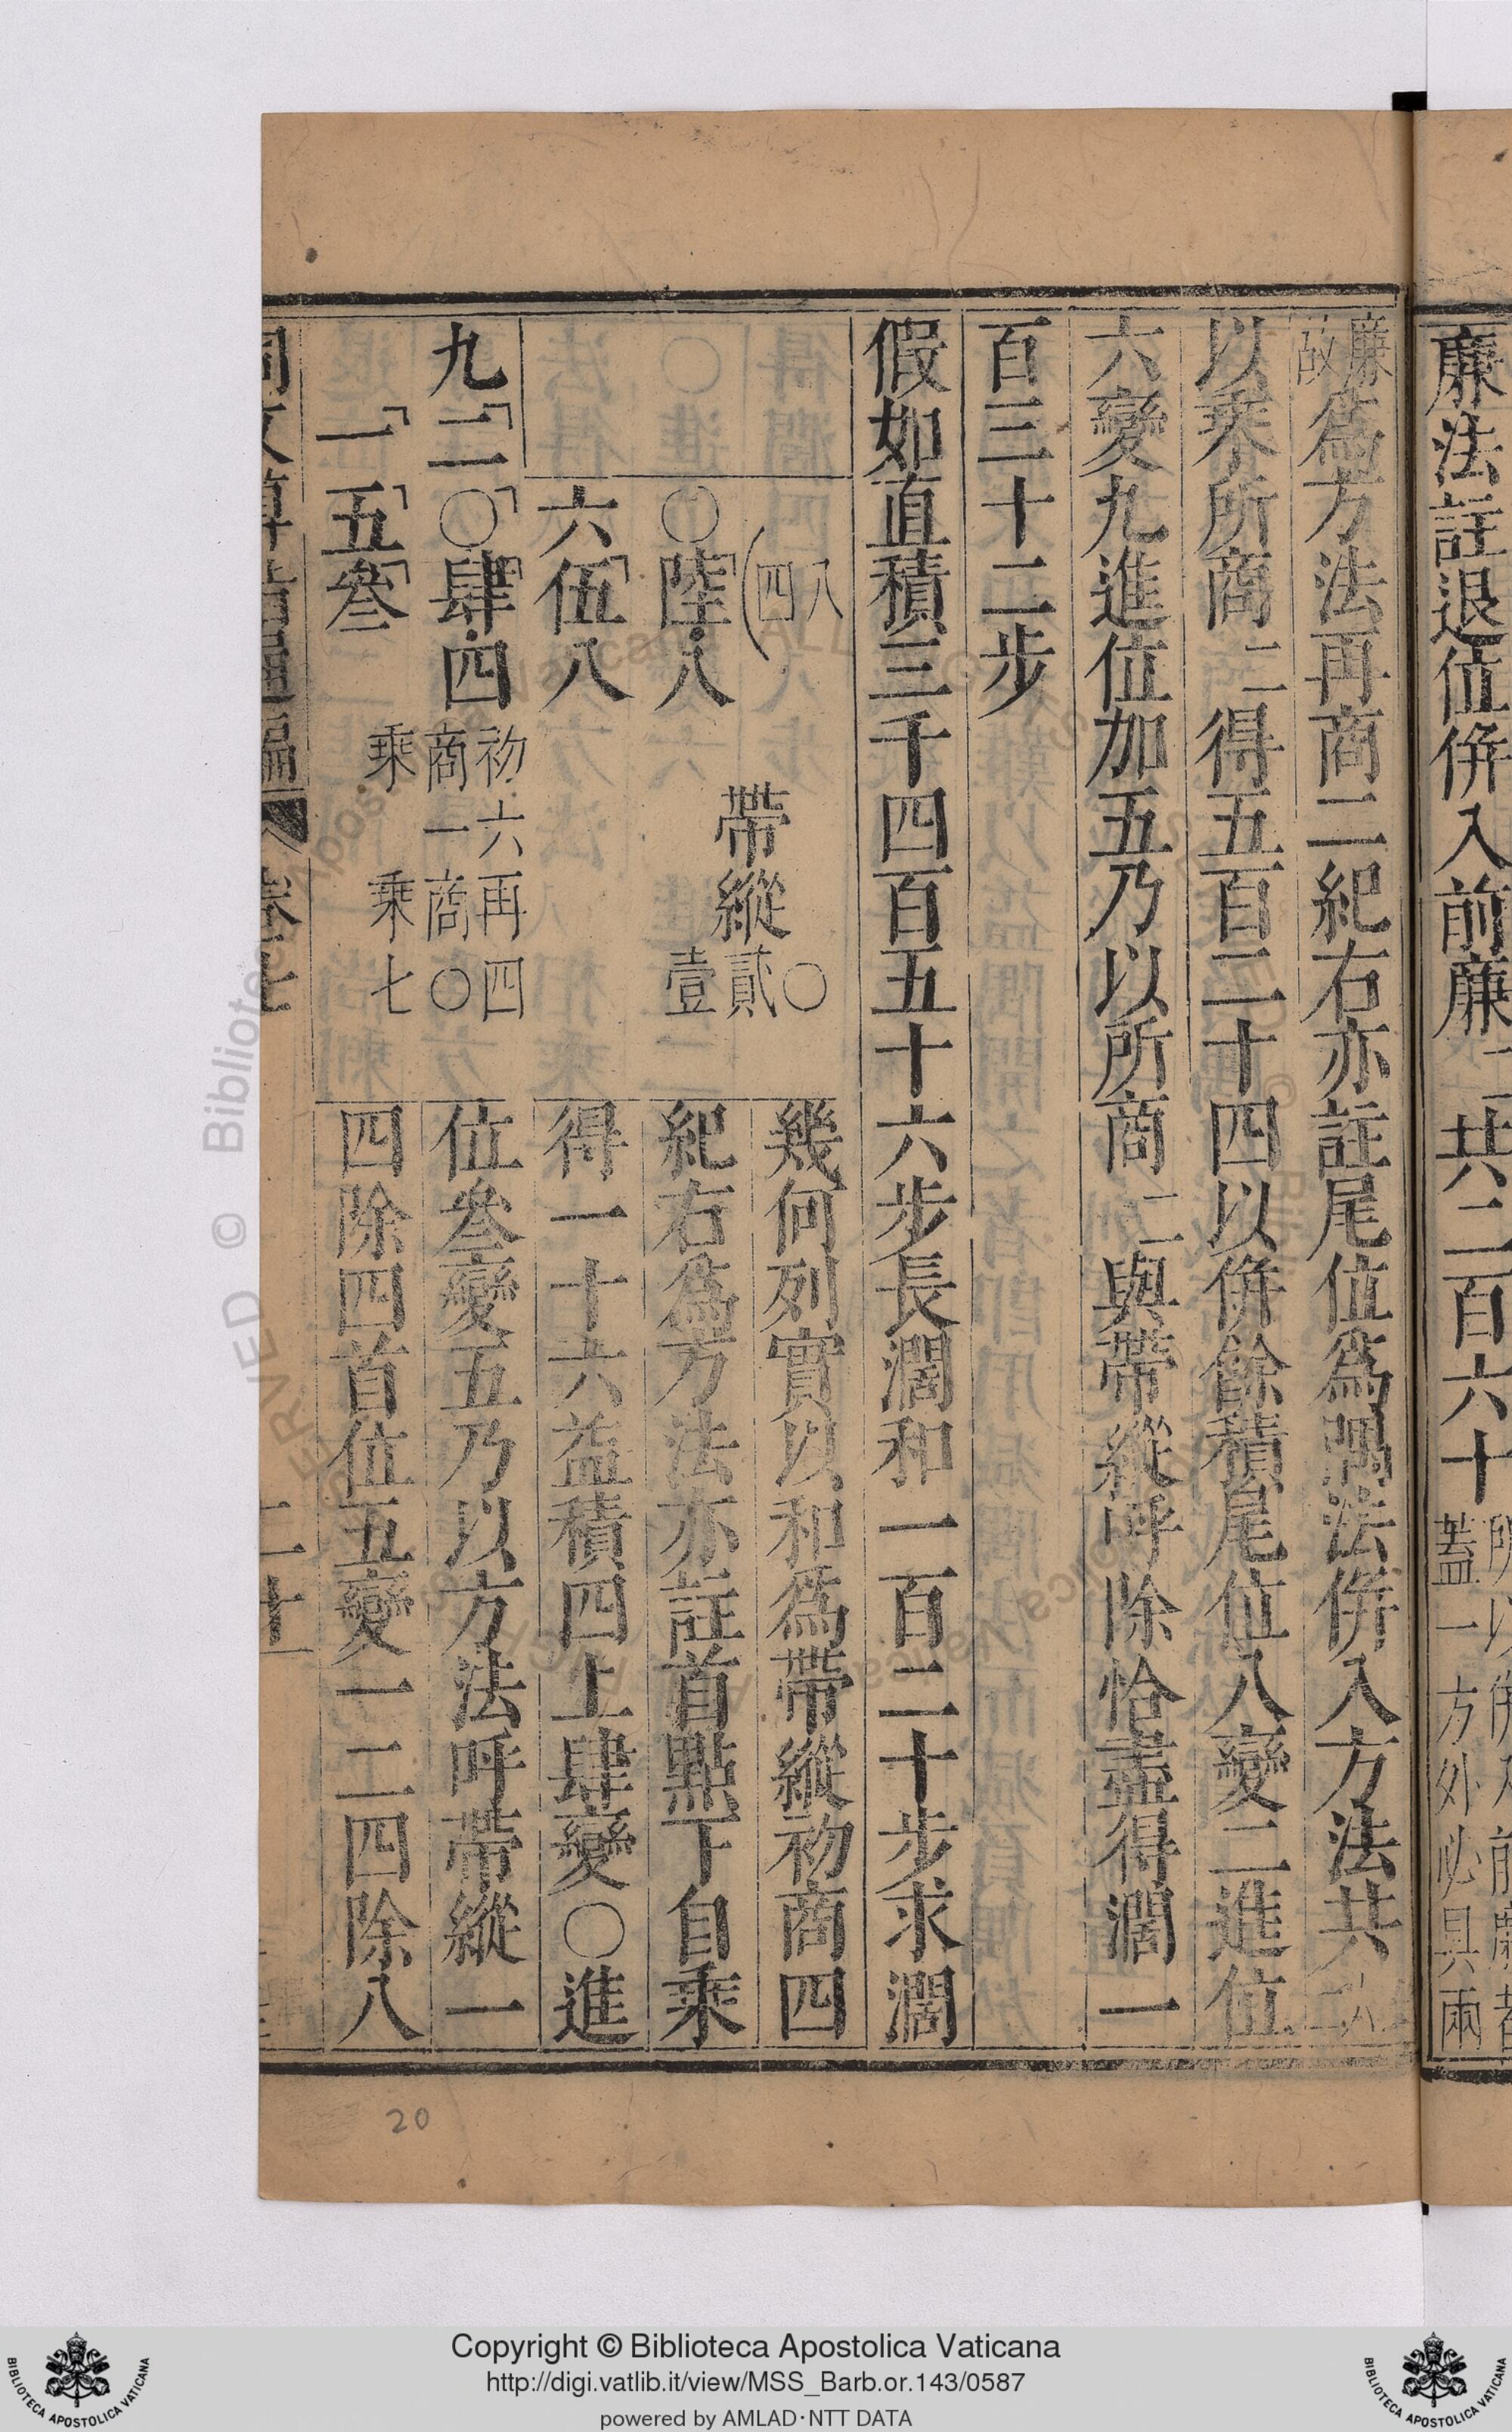 廉法註退位併入前廉二共二百六十
蓋一方外必具兩
廉故為方法再商二紀右亦註尾位為隅法併入方法共二六
以乘所商二得五百二十四以併餘積尾位八變二進位
六變九進位加五乃以所商二與帶縱呼除恰盡得濶一
百三十二步
假如直積三千四百五十六步長濶和一百二十步求濶
幾何列實以和為帶縱初商四
紀右為方法亦註首點下自乘
得一十六益積四上肆變〇進
位叄變五乃以方法呼帶縱一
四除四首位五變一二四除八
八四
〇陸八
六伍八
九二〇肆四
一五叄
帶縱
〇貳壹
初六再四
商一商〇
乘乘七
同文算指通編 卷七 二十
20
© Biblioteca Apostolica Vaticana
Copyright © Biblioteca Apostolica Vaticana
http://digi.vatlib.it/view/MSS_Barb.or.143/0587
powered by AMLAD·NTT DATA
BIBLIOTECA APOSTOLICA VATICANA
BIBLIOTECA APOSTOLICA VATICANA